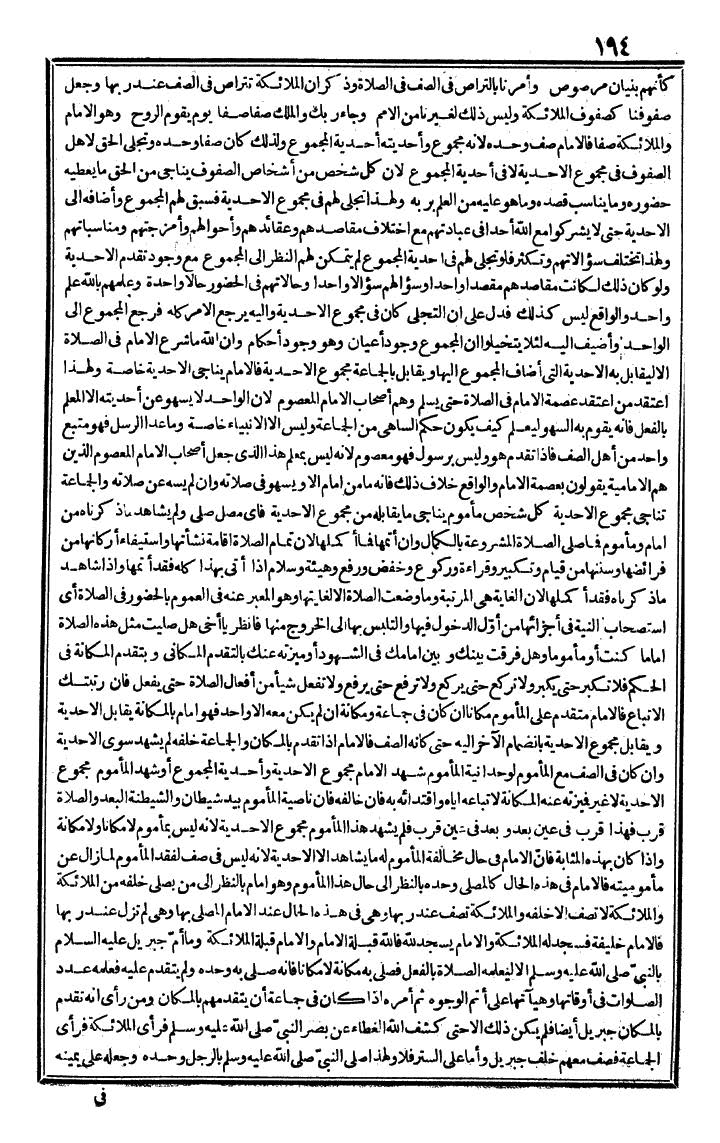 ١٩٤
كأنهم بنيان مرصوص وأمرنا بالتراص فى الصف فى الصلاة وذكر ان الملائكة تتراص فى الصف عند ربها وجعل
صفوفنا كصفوف الملائكة وليس ذلك لغيرنا من الامم وجاء ربك والملك صفا صفا يوم يقوم الروح وهو الامام
والملائكة صفا فالامام صف وحده لانه مجموع وأحديته أحدية المجموع ولذلك كان صفا وحده وتجلى الحق لاهل
الصفوف فى مجموع الاحدية لا فى أحدية المجموع لان كل شخص من أشخاص الصفوف يناجى من الحق ما يعطيه
حضوره وما يناسب قصده وما هو عليه من العلم بربه ولهذا تجلى لهم فى مجموع الاحدية فسبق لهم المجموع وأضافه الى
الاحدية حتى لا يشركوا مع الله أحدا فى عبادتهم مع اختلاف مقاصدهم وعقائدهم وأحوالهم وأمزجتهم ومناسباتهم
ولهذا تختلف سؤالاتهم وتكثر فلو تجلى لهم فى أحدية المجموع لم يتمكن لهم النظر الى المجموع مع وجود تقدم الاحدية
ولو كان ذلك لكانت مقاصدهم مقصدا واحدا وسؤالهم سؤالا واحدا وحالاتهم فى الحضور حالا واحدة وعلمهم بالله علم
واحد والواقع ليس كذلك فدل على ان التجلى كان فى مجموع الاحدية واليه يرجع الامر كله فرجع المجموع الى
الواحد وأضيف اليه لئلا يتخيلوا ان المجموع وجود أعيان وهو وجود أحكام وان الله ما شرع الامام فى الصلاة
الا ليقابل به الاحدية التى أضاف المجموع اليها ويقابل بالجماعة مجموع الاحدية فالامام يناجى الاحدية خاصة ولهذا
اعتقد من اعتقد عصمة الامام فى الصلاة حتى يسلم وهم أصحاب الامام المعصوم لان الواحد لا يسهو عن أحديته الا المعلم
بالفعل فانه يقوم به السهو ليعلم كيف يكون حكم الساهى من الجماعة وليس الا الانبياء خاصة وما عدا الرسل فهو متبع
واحد من أهل الصف فاذا تقدم هو وليس برسول فهو معصوم لانه ليس بمعلم هذا الذى جعل أصحاب الامام المعصوم الذين
هم الامامية يقولون بعصمة الامام والواقع خلاف ذلك فانه ما من امام الا ويسهو فى صلاته وان لم يسه عن صلاته والجماعة
تناجى مجموع الاحدية كل شخص مأموم يناجى ما يقابله من مجموع الاحدية فاى مصل صلى ولم يشاهد ما ذكرناه من
امام ومأموم فما صلى الصلاة المشروعة بالكمال وان أتمها فما أكملها لان تمام الصلاة اقامة نشأتها واستيفاء أركانها من
فرائضها وسننها من قيام وتكبير وقراءة وركوع وخفض ورفع وهيئة وسلام اذا أتى بهذا كله فقد أتمها واذا شاهد
ما ذكرناه فقد أكملها لان الغاية هى المرتبة وما وضعت الصلاة الا لغايتها وهو المعبر عنه فى العموم بالحضور فى الصلاة أى
استصحاب النية فى أجزائها من أول الدخول فيها والتلبس بها الى الخروج منها فانظر يا أخى هل صليت مثل هذه الصلاة
اماما كنت أو مأموما وهل فرقت بينك وبين امامك فى الشهود أو ميزته عنك بالتقدم المكانى وبتقدم المكانة فى
الحكم فلا تكبر حتى يكبر ولا تركع حتى يركع ولا ترفع حتى يرفع ولا تفعل شيأ من أفعال الصلاة حتى يفعل فان رتبتك
الاتباع فالامام متقدم على المأموم مكانا ان كان فى جماعة ومكانة ان لم يكن معه الا واحد فهو امام بالمكانة يقابل الاحدية
ويقابل مجموع الاحدية بانضمام الآخر اليه حتى كانه الصف فالامام اذا تقدم بالمكان والجماعة خلفه لم يشهد سوى الاحدية
وان كان فى الصف مع المأموم لوحدانية المأموم شهد الامام مجموع الاحدية وأحدية المجموع أو شهد المأموم مجموع
الاحدية لا غير فيزته عنه المكانة لاتباعه اياه واقتدائه به فان خالفه فان ناصية المأموم بيد شيطان والشيطنة البعد والصلاة
قرب فهذا قرب فى عين بعد وبعد فى عين قرب فلم يشهد هذا المأموم مجموع الاحدية لانه ليس بمأموم لا مكانا ولا مكانة
واذا كان بهذه المثابة فان الامام فى حال مخالفة المأموم له ما يشاهد الا الاحدية لانه ليس فى صف لفقد المأموم لما زال عن
مأموميته فالامام فى هذه الحال كالمصلى وحده بالنظر الى حال هذا المأموم وهو امام بالنظر الى من يصلى خلفه من الملائكة
والملائكة لا تصف الا خلفه والملائكة تصف عند ربها وهى فى هذه الحال عند الامام المصلى بها وهى لم تزل عند ربها
فالامام خليفة فسجد له الملائكة والامام يسجد لله فالله قبلة الامام والامام قبلة الملائكة وما أمّ جبريل عليه السلام
بالنبىّ صلى الله عليه وسلم الا ليعلمه الصلاة بالفعل فصلى به مكانة لا مكانا فانه صلى به وحده ولم يتقدم عليه فعلمه عدد
الصلوات فى أوقاتها وهيآتها على أتم الوجوه ثم أمره اذا كان فى جماعة أن يتقدمهم بالمكان ومن رأى انه تقدم
بالمكان جبريل أيضا فلم يكن ذلك الا حتى كشف الله الغطاء عن بصر النبىّ صلى الله عليه وسلم فرأى الملائكة فرأى
الجماعة فصف معهم خلف جبريل وأما على الستر فلا ولهذا صلى النبىّ صلى الله عليه وسلم بالرجل وحده وجعله على يمينه
فى